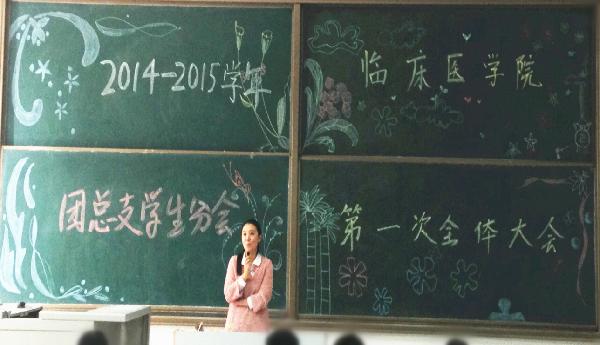 2014-2015学年
临床医学院
团总支学生分会
第一次全体大会